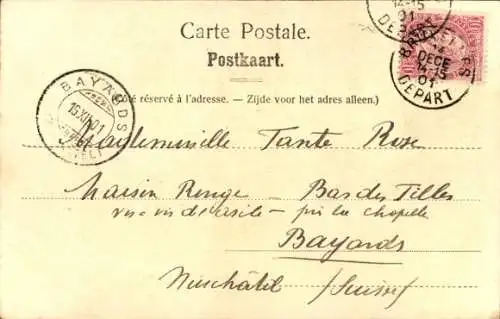 Carte Postale.
Postkaart.
é réservé à l'adresse. – Zijde voor het adres alleen.)
BRUXELLES
14 DECE
14-15
01
DÉPART
BAYARDS
16 XII 01
Mademoiselle Tante Rose
Maison Rouge - Bas des Tilles
vis-à-vis de l'asile - près la chapelle
Bayards
Neuchâtel (Suisse)